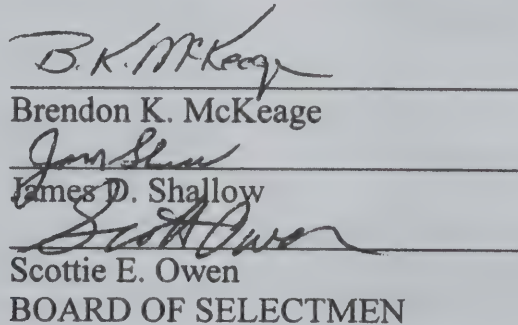 B.K. McKeage
Brendon K. McKeage
James D. Shallow
Scott Owen
Scottie E. Owen
BOARD OF SELECTMEN